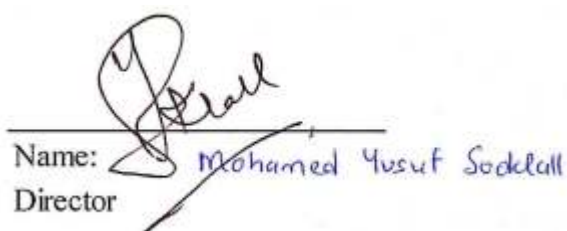 Name: Mohamed Yusuf Sodclall
Director